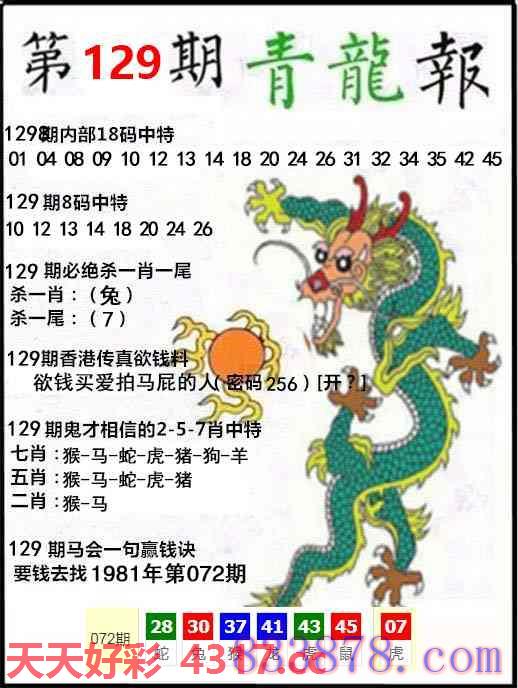 第129期 青龍報
129期内部18码中特
01 04 08 09 10 12 13 14 18 20 24 26 31 32 34 35 42 45
129期8码中特
10 12 13 14 18 20 24 26
129 期必绝杀一肖一尾
杀一肖：（兔）
杀一尾：（7）
129期香港传真欲钱料
欲钱买爱拍马屁的人（密码256）[开？]
129期鬼才相信的2-5-7肖中特
七肖：猴-马-蛇-虎-猪-狗-羊
五肖：猴-马-蛇-虎-猪
二肖：猴-马
129 期马会一句赢钱诀
要钱去找1981年第072期
072期 28 30 37 41 43 45 07
蛇 兔 猴 龙 虎 鼠 虎
天天好彩 4387.cc